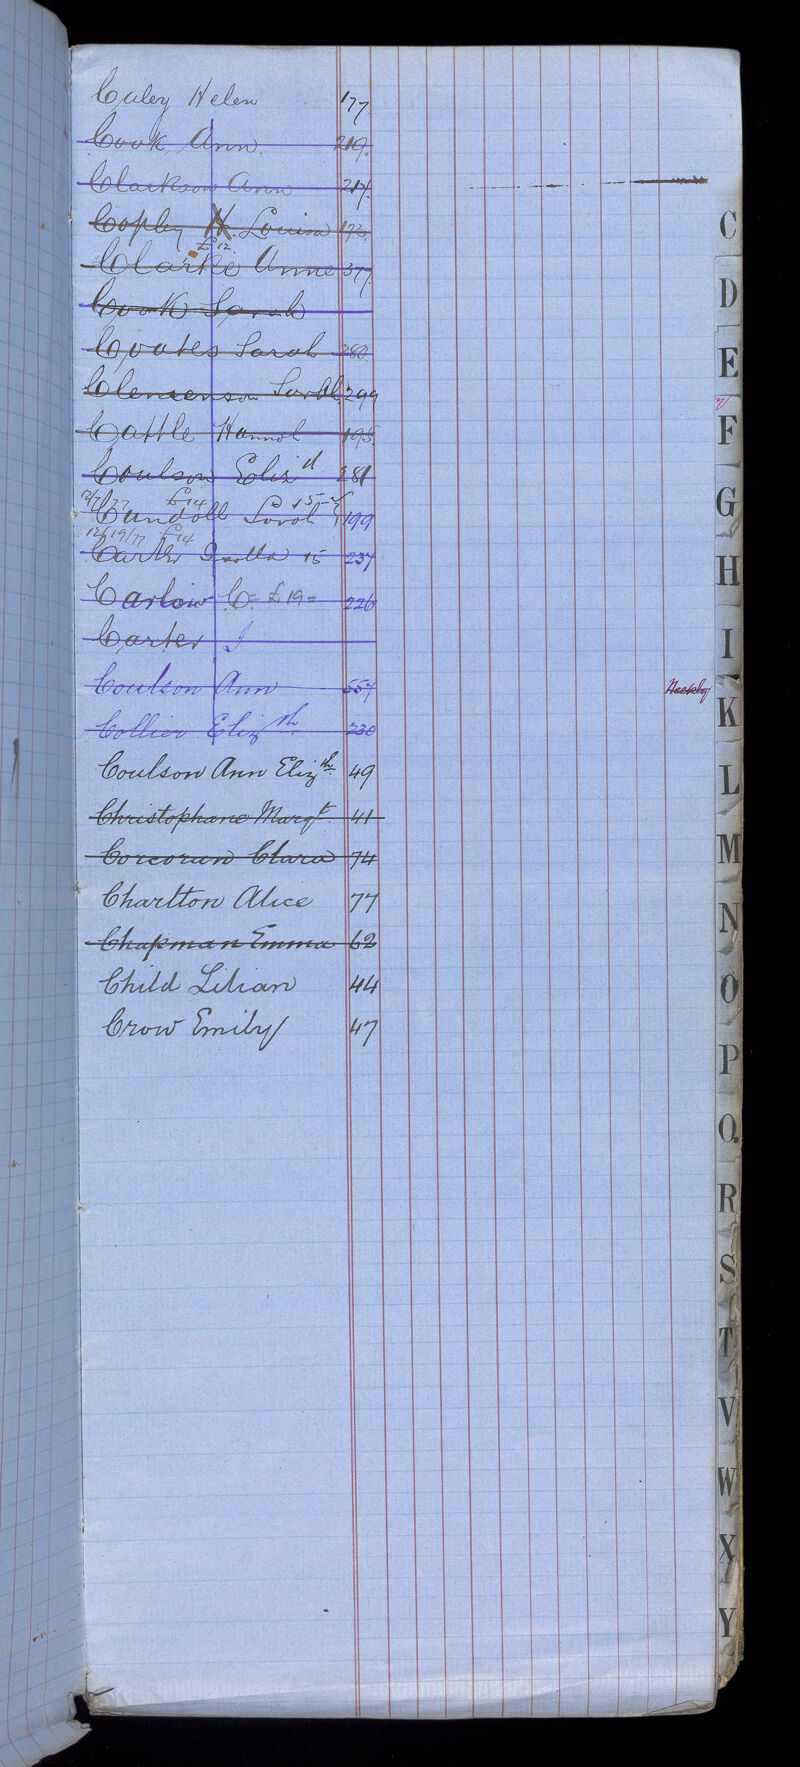 Caley Helen 177
Cook Ann 219.
Clarkson Ann 214.
Copley H. Louisa 173.
£12
Clarke Anne 377.
Cook Sarah
Coates Sarah 280
Clemenson Sarah 299
Cattle Hannah 195.
Coulson Eliz 281
£14 15
Cundall Sarah 199
12/19/77 £14
Carter 15 237
Carlow C = £19 = 226
Carter J
Coulson Ann 557
Weekly
Collier Elizth 230
Coulson Ann Elizth. 49
Christophane Margt 41
Corcoran Clara 74
Charlton Alice 77
Chapman Emma 62
Child Lilian 44
Crow Emily 47
C
D
E
F
G
H
I
K
L
M
N
O
P
Q.
R
S
T
V
W
X
Y